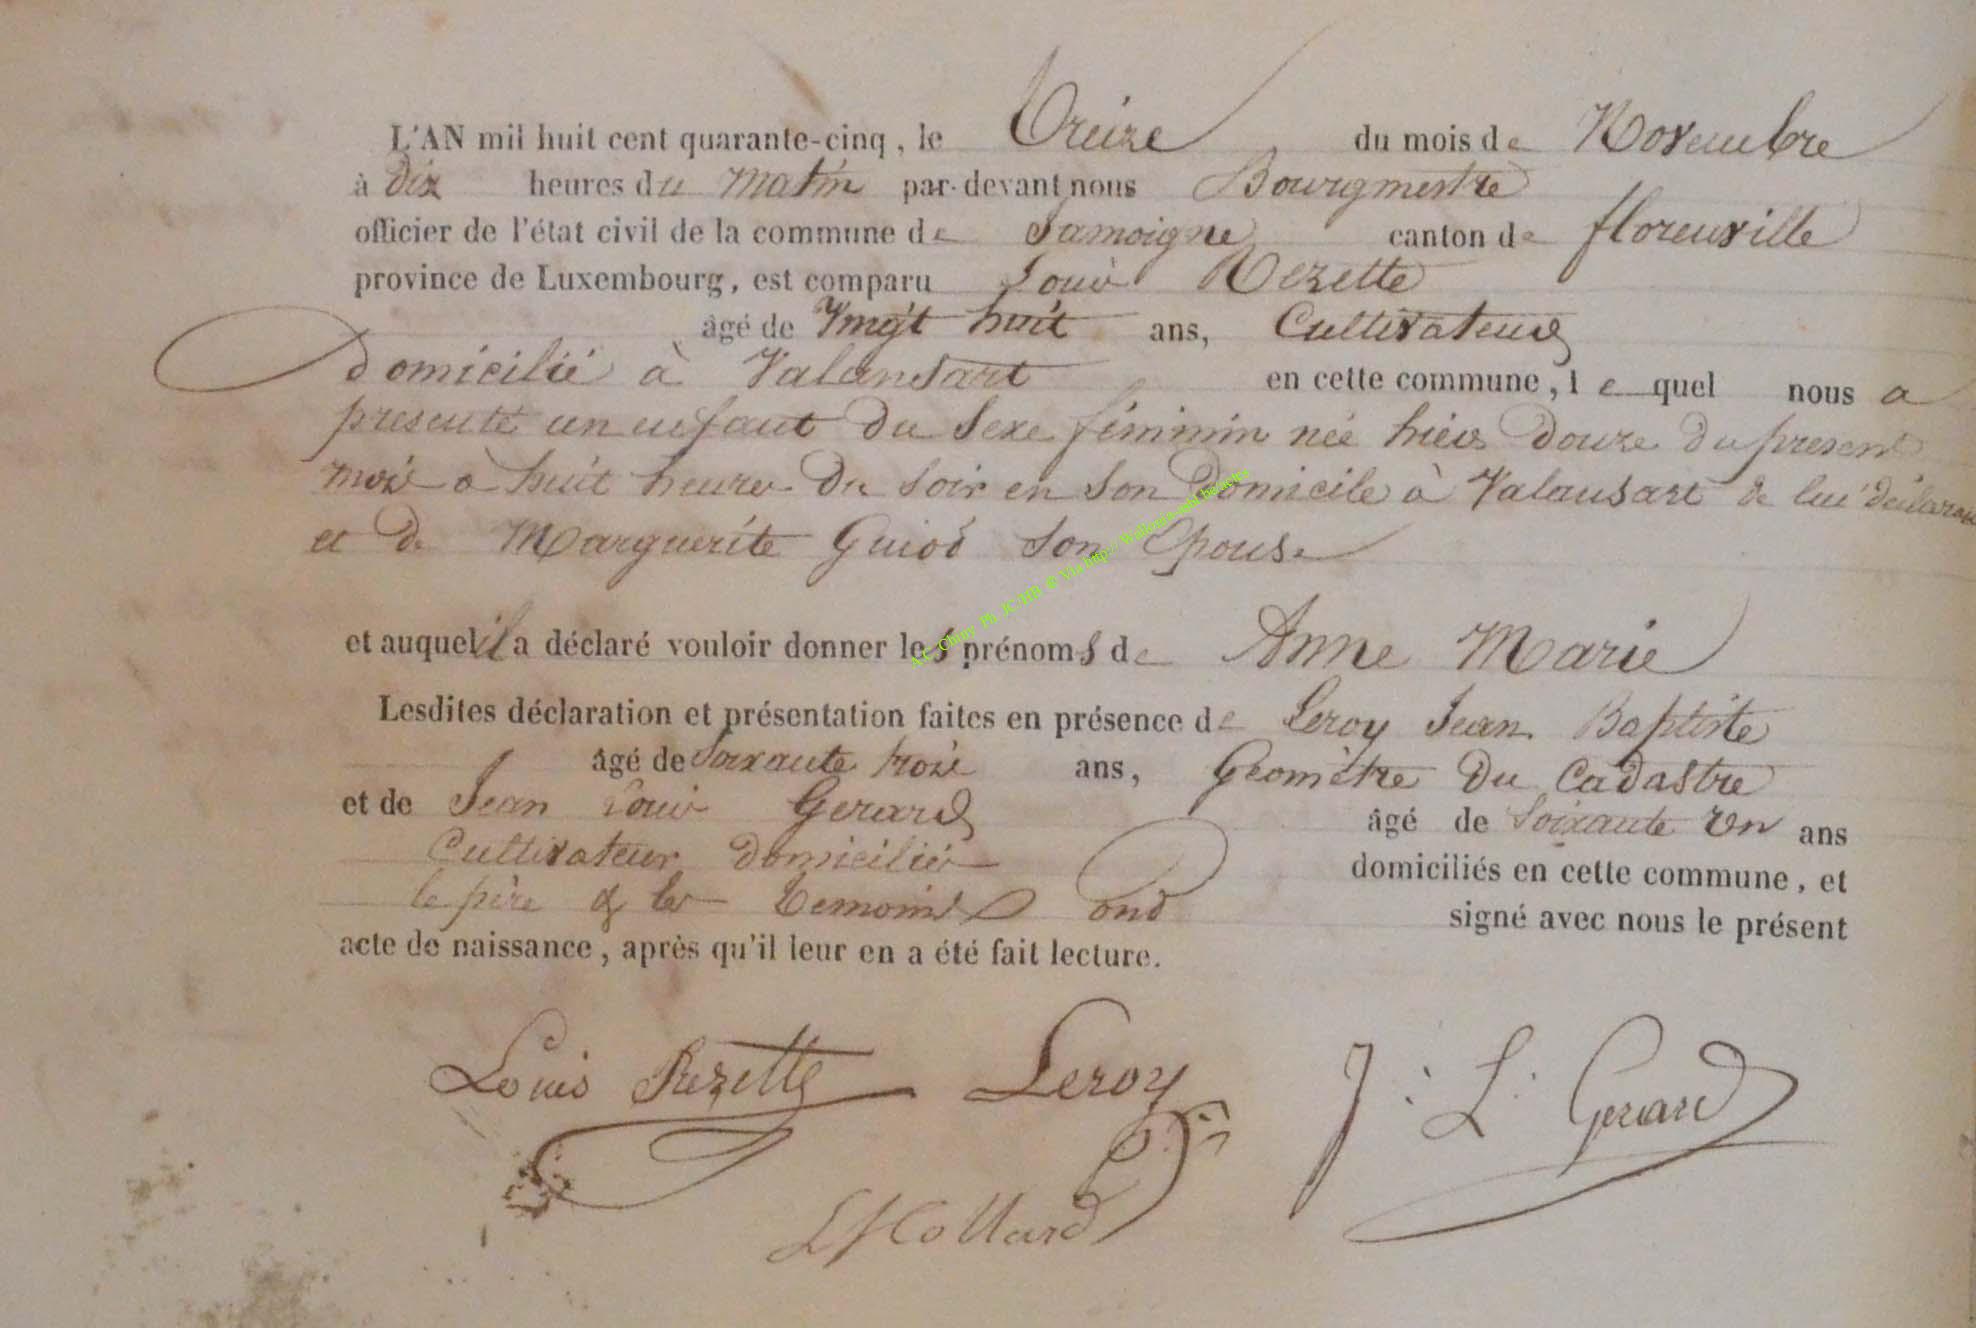 L'AN mil huit cent quarante-cinq, le Treize du mois de Novembre
à dix heures du Matin par-devant nous Bourgmestre
officier de l'état civil de la commune de Jamoigne canton de florenville
province de Luxembourg, est comparu Louis Rezette
âgé de Vingt huit ans, Cultivateur
Domicilié à Valansart en cette commune, lequel nous a
presenté un enfant du Sexe féminin née hier Douze du present
mois a huit heures Du Soir en Son Domicile à Valansart de lui déclarant
et de Marguerite Guiod Son Epouse
et auquel il a déclaré vouloir donner les prénoms de Anne Marie
Lesdites déclaration et présentation faites en présence de Leroy Jean Baptiste
âgé de Soixante trois ans, Géomètre Du Cadastre
et de Jean Louis Gerard âgé de Soixante Un ans
Cultivateur domiciliés domiciliés en cette commune, et
le père & les temoins ond signé avec nous le présent
acte de naissance, après qu'il leur en a été fait lecture.
Louis Rezette Leroy J. L. Gerard
Hollard
A.C. Chiny Ph. JC HB © Via http://